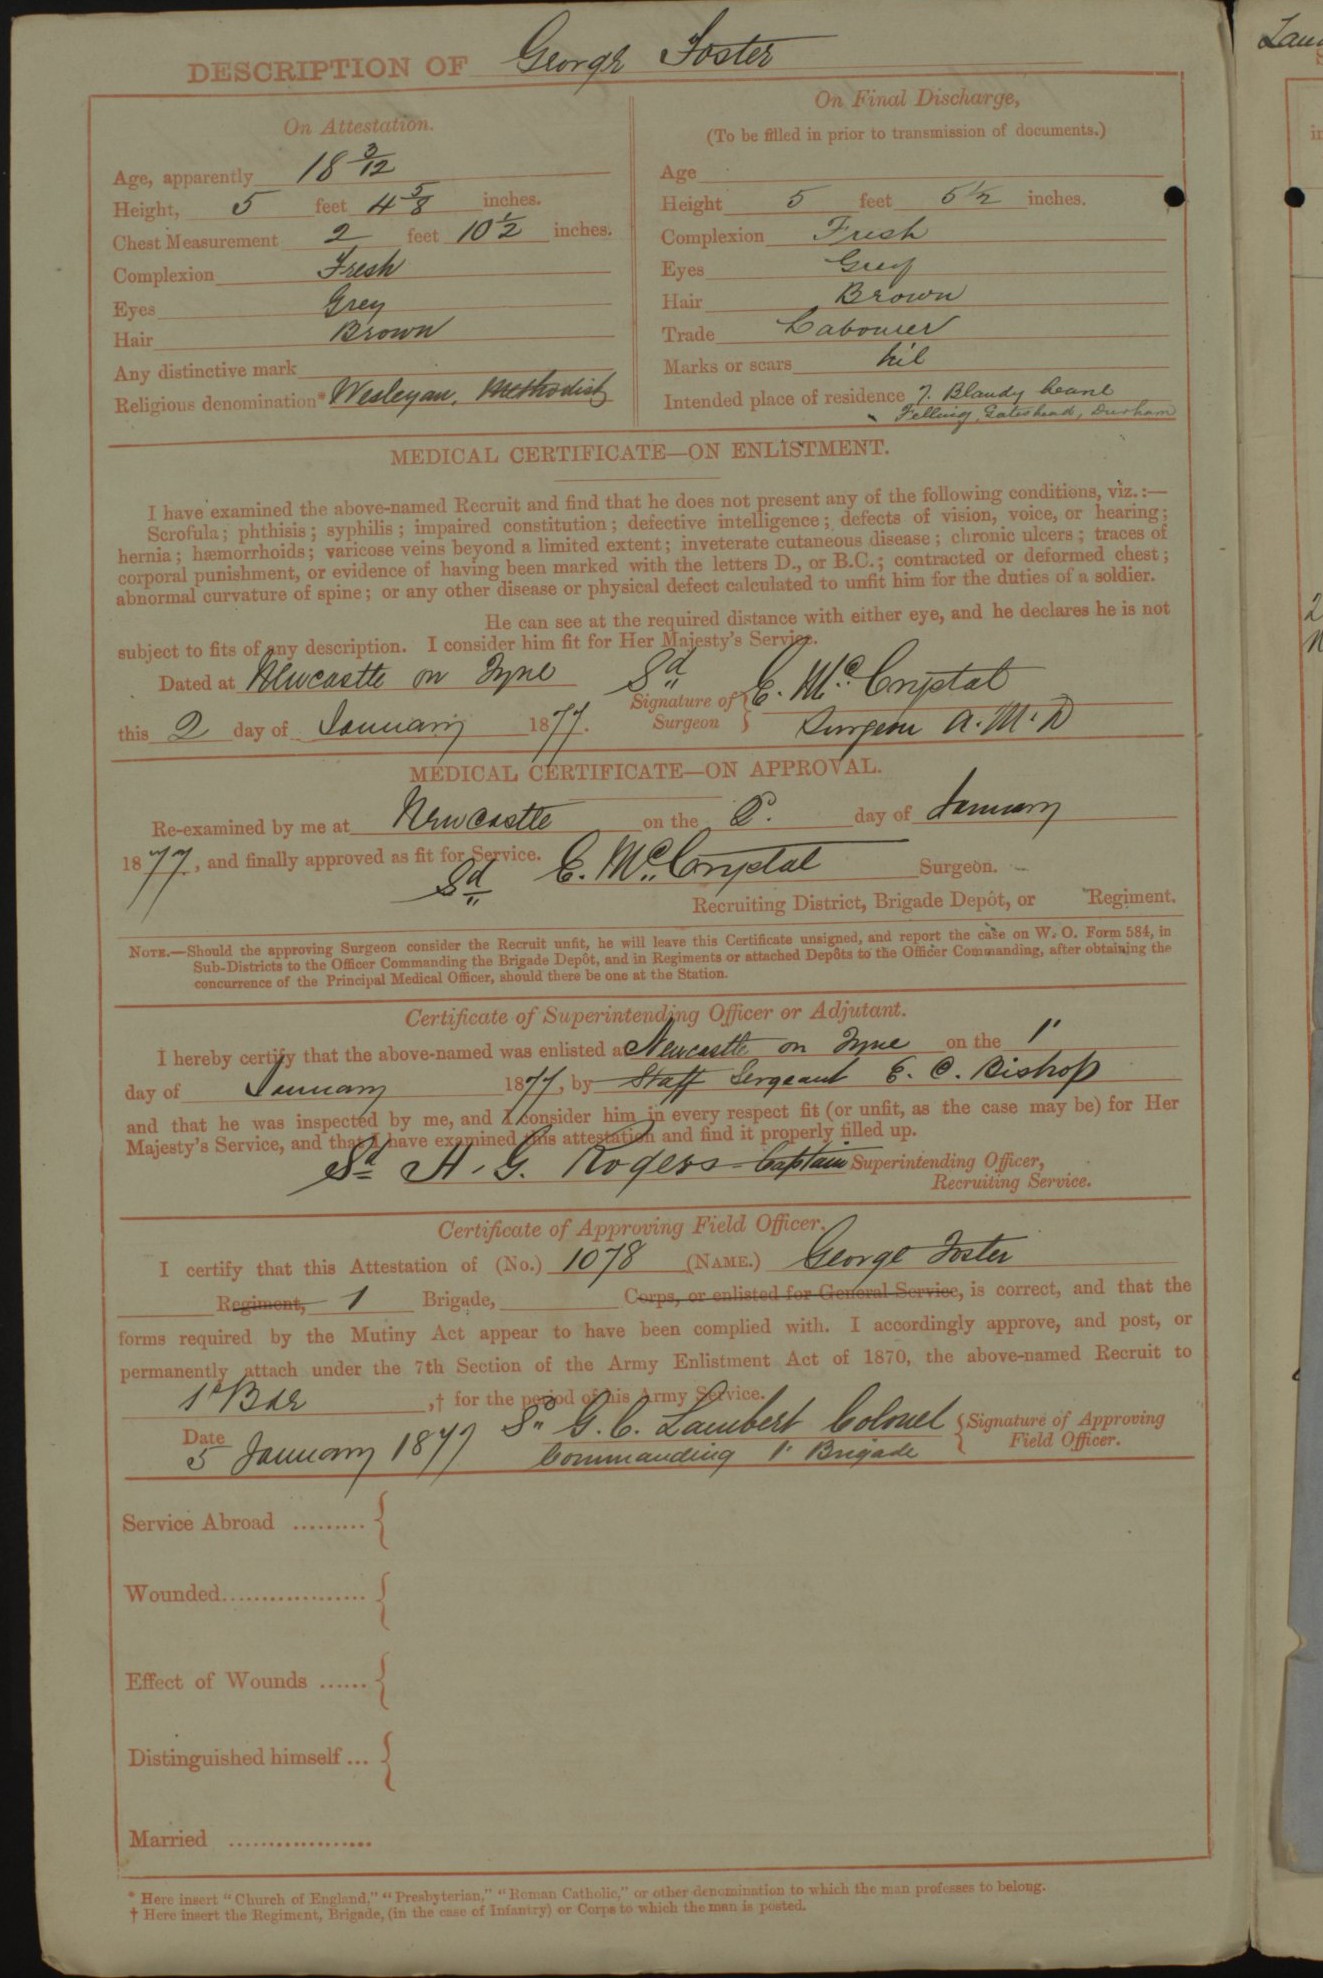 DESCRIPTION OF George Foster
On Attestation.
Age, apparently 18 3/12
Height, 5 feet 4 5/8 inches.
Chest Measurement 2 feet 10 1/2 inches.
Complexion Fresh
Eyes Grey
Hair Brown
Any distinctive mark
Religious denomination* Wesleyan, Methodist
On Final Discharge,
(To be filled in prior to transmission of documents.)
Age
Height 5 feet 5 1/2 inches.
Complexion Fresh
Eyes Grey
Hair Brown
Trade Labourer
Marks or scars Nil
Intended place of residence 7. Blandy
Felling, Gateshead, Durham
MEDICAL CERTIFICATE—ON ENLISTMENT.
I have examined the above-named Recruit and find that he does not present any of the following conditions, viz.:—
Scrofula; phthisis; syphilis; impaired constitution; defective intelligence; defects of vision, voice, or hearing;
hernia; hæmorrhoids; varicose veins beyond a limited extent; inveterate cutaneous disease; chronic ulcers; traces of
corporal punishment, or evidence of having been marked with the letters D., or B.C.; contracted or deformed chest;
abnormal curvature of spine; or any other disease or physical defect calculated to unfit him for the duties of a soldier.
He can see at the required distance with either eye, and he declares he is not
subject to fits of any description. I consider him fit for Her Majesty's Service.
Dated at Newcastle on Tyne Sd Signature of Surgeon } E. McCrystal
this 2 day of January 1877. Surgeon A.M.D
MEDICAL CERTIFICATE—ON APPROVAL.
Re-examined by me at Newcastle on the 2. day of January
1877, and finally approved as fit for Service.
Sd E. McCrystal Surgeon.
Recruiting District, Brigade Depôt, or Regiment.
NOTE.—Should the approving Surgeon consider the Recruit unfit, he will leave this Certificate unsigned, and report the case on W. O. Form 584, in
Sub-Districts to the Officer Commanding the Brigade Depôt, and in Regiments or attached Depôts to the Officer Commanding, after obtaining the
concurrence of the Principal Medical Officer, should there be one at the Station.
Certificate of Superintending Officer or Adjutant.
I hereby certify that the above-named was enlisted at Newcastle on Tyne on the 1"
day of January 1877, by Staff Sergeant E. C. Bishop
and that he was inspected by me, and I consider him in every respect fit (or unfit, as the case may be) for Her
Majesty's Service, and that I have examined this attestation and find it properly filled up.
Sd H. G. Rogers Captain Superintending Officer,
Recruiting Service.
Certificate of Approving Field Officer.
I certify that this Attestation of (No.) 1078 (NAME.) George Foster
Regiment, 1 Brigade, Corps, or enlisted for General Service, is correct, and that the
forms required by the Mutiny Act appear to have been complied with. I accordingly approve, and post, or
permanently attach under the 7th Section of the Army Enlistment Act of 1870, the above-named Recruit to
1" Bde ,† for the period of his Army Service.
Date Sd G. C. Lambert Colonel { Signature of Approving
5 January 1877 Commanding 1" Brigade Field Officer.
Service Abroad ......... {
Wounded.................. {
Effect of Wounds ...... {
Distinguished himself ... {
Married ..................
* Here insert "Church of England," "Presbyterian," "Roman Catholic," or other denomination to which the man professes to belong.
† Here insert the Regiment, Brigade, (in the case of Infantry) or Corps to which the man is posted.